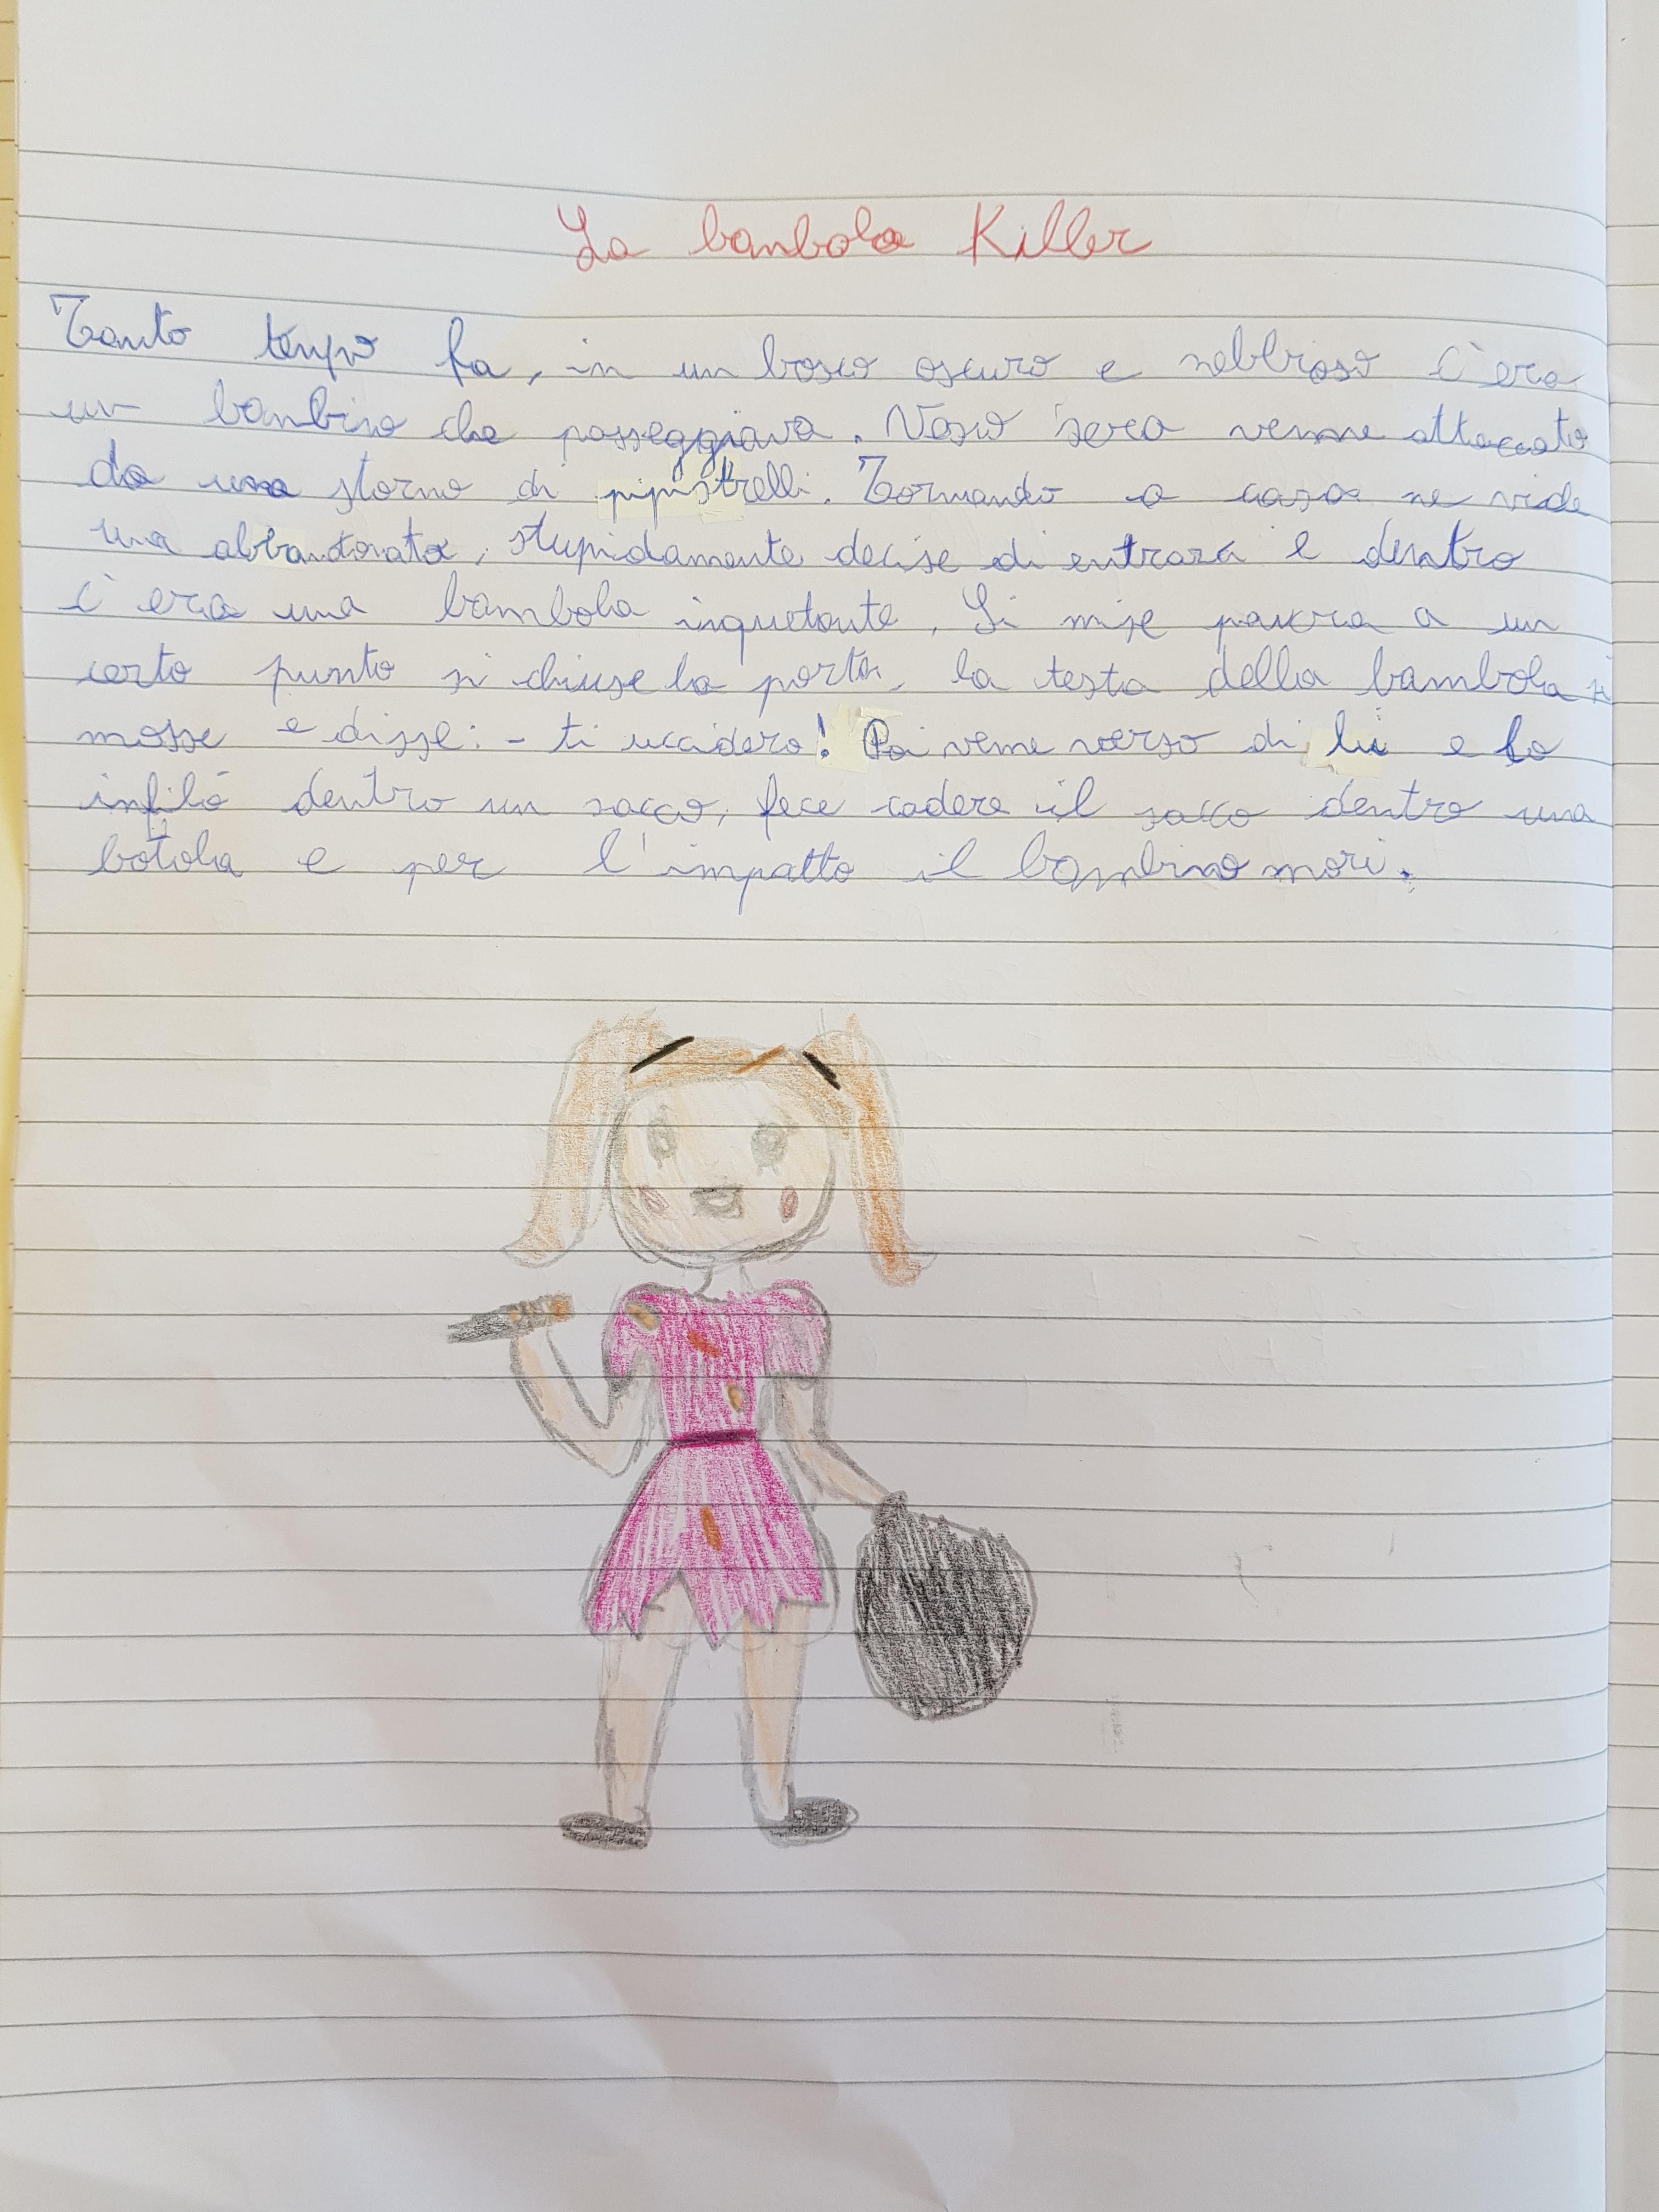 La banbola Killer
Tanto tempo fa, in un bosco oscuro e nebbioso c'era
un banbino che passeggiava. Verso sera venne attaccato
da uno stormo di pipistrelli. Tornando a casa ne vide
una abbandonata, stupidamente decise di entrare e dentro
c'era una bambola inquetante. Si mise paura a un
certo punto si chiuse la porta, la testa della bambola si
mosse e disse: - ti ucciderò! Poi venne verso di lui e lo
infilò dentro un sacco, fece cadere il sacco dentro una
botola e per l'impatto il bambino morì.